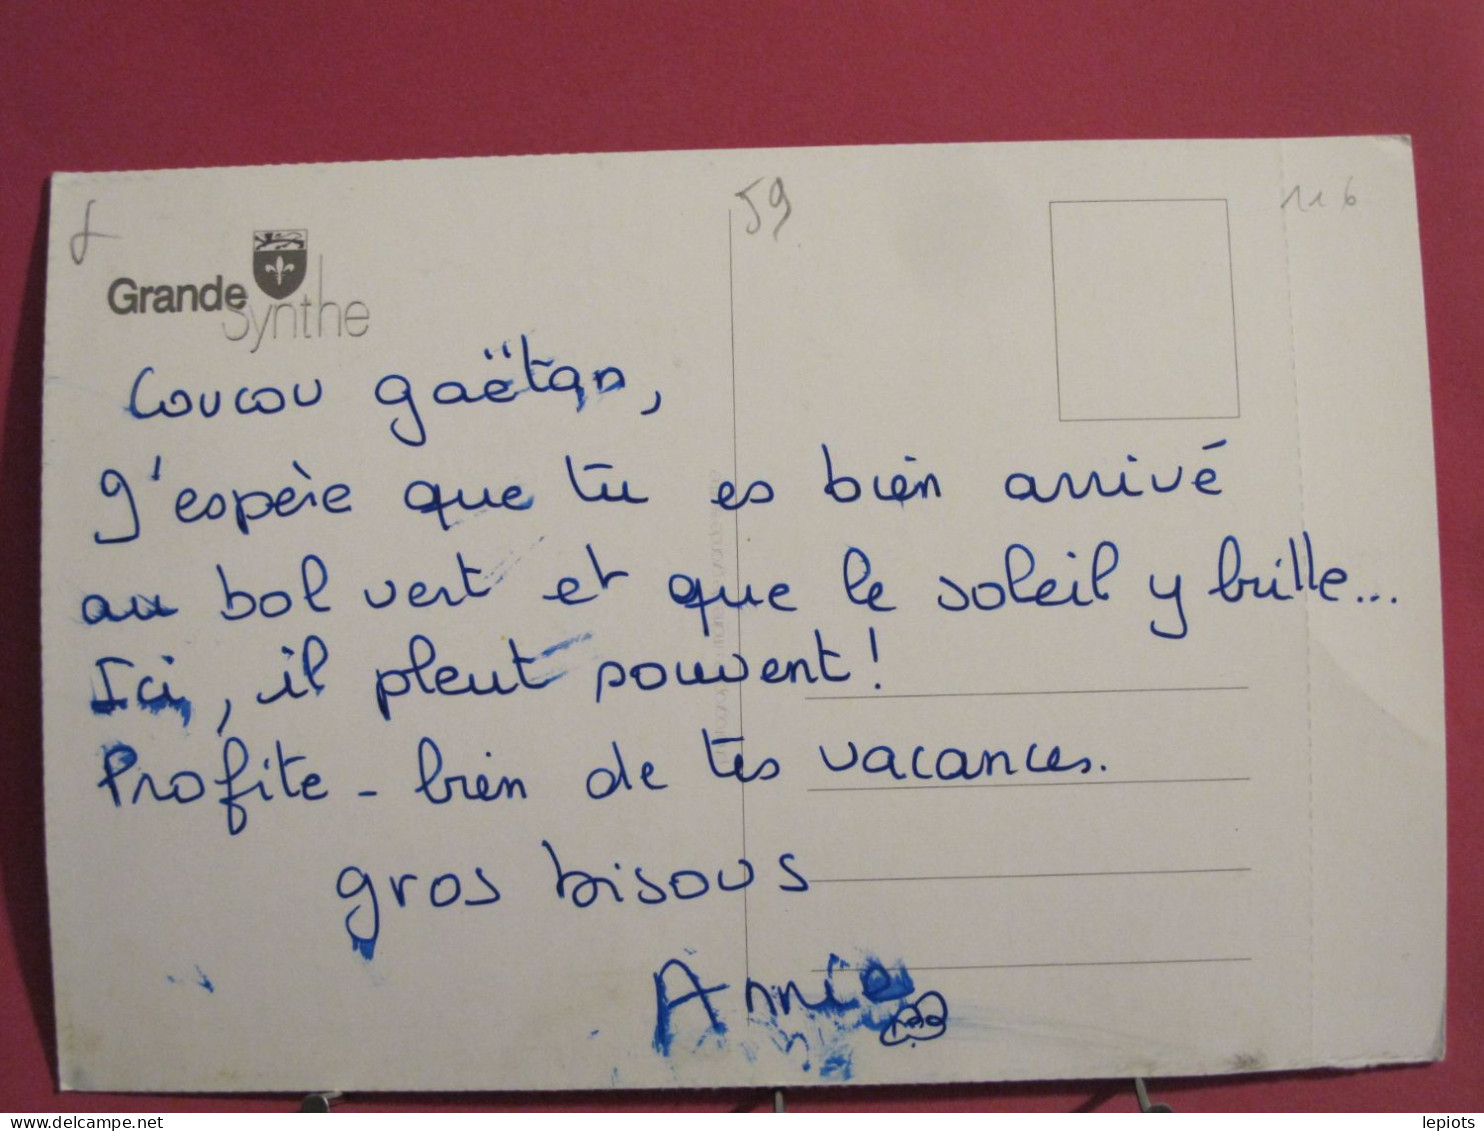 59
116
Grande
Synthe
Coucou gaëtan,
J'espère que tu es bien arrivé
au bol vert et que le soleil y brille...
Ici, il pleut souvent !
Profite - bien de tes vacances.
gros bisous
Annie
delcampe.net
lepiots